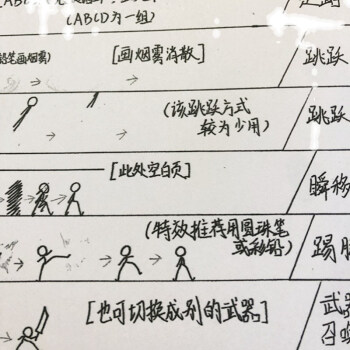 (ABCD为一组)
铅笔画烟雾)
[画烟雾消散]
跳跃
(该跳跃方式
较为少用)
跳跃
[此处空白页]
瞬移
(特效推荐用圆珠笔
或彩铅)
踢腿
[也可切换成别的武器]
武器
召唤